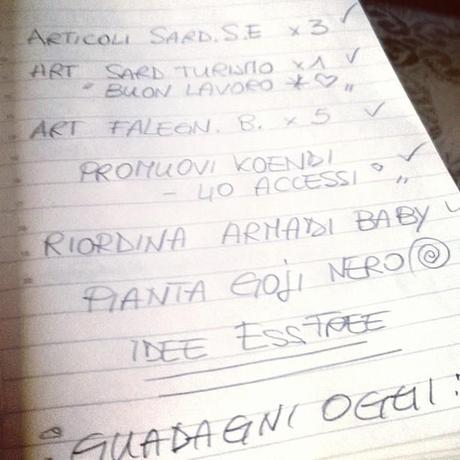 ARTICOLI SARD. S.E x 3 ✓
ART SARD TURISMO x 1 ✓
" BUON LAVORO * ♡ "
ART FALEGN. B. x 5 ✓
PROMUOVI KOENDI ✓
- 40 ACCESSI "
RIORDINA ARMADI BABY ✓
PIANTA GOJI NERO
IDEE
GUADAGNI OGGI: